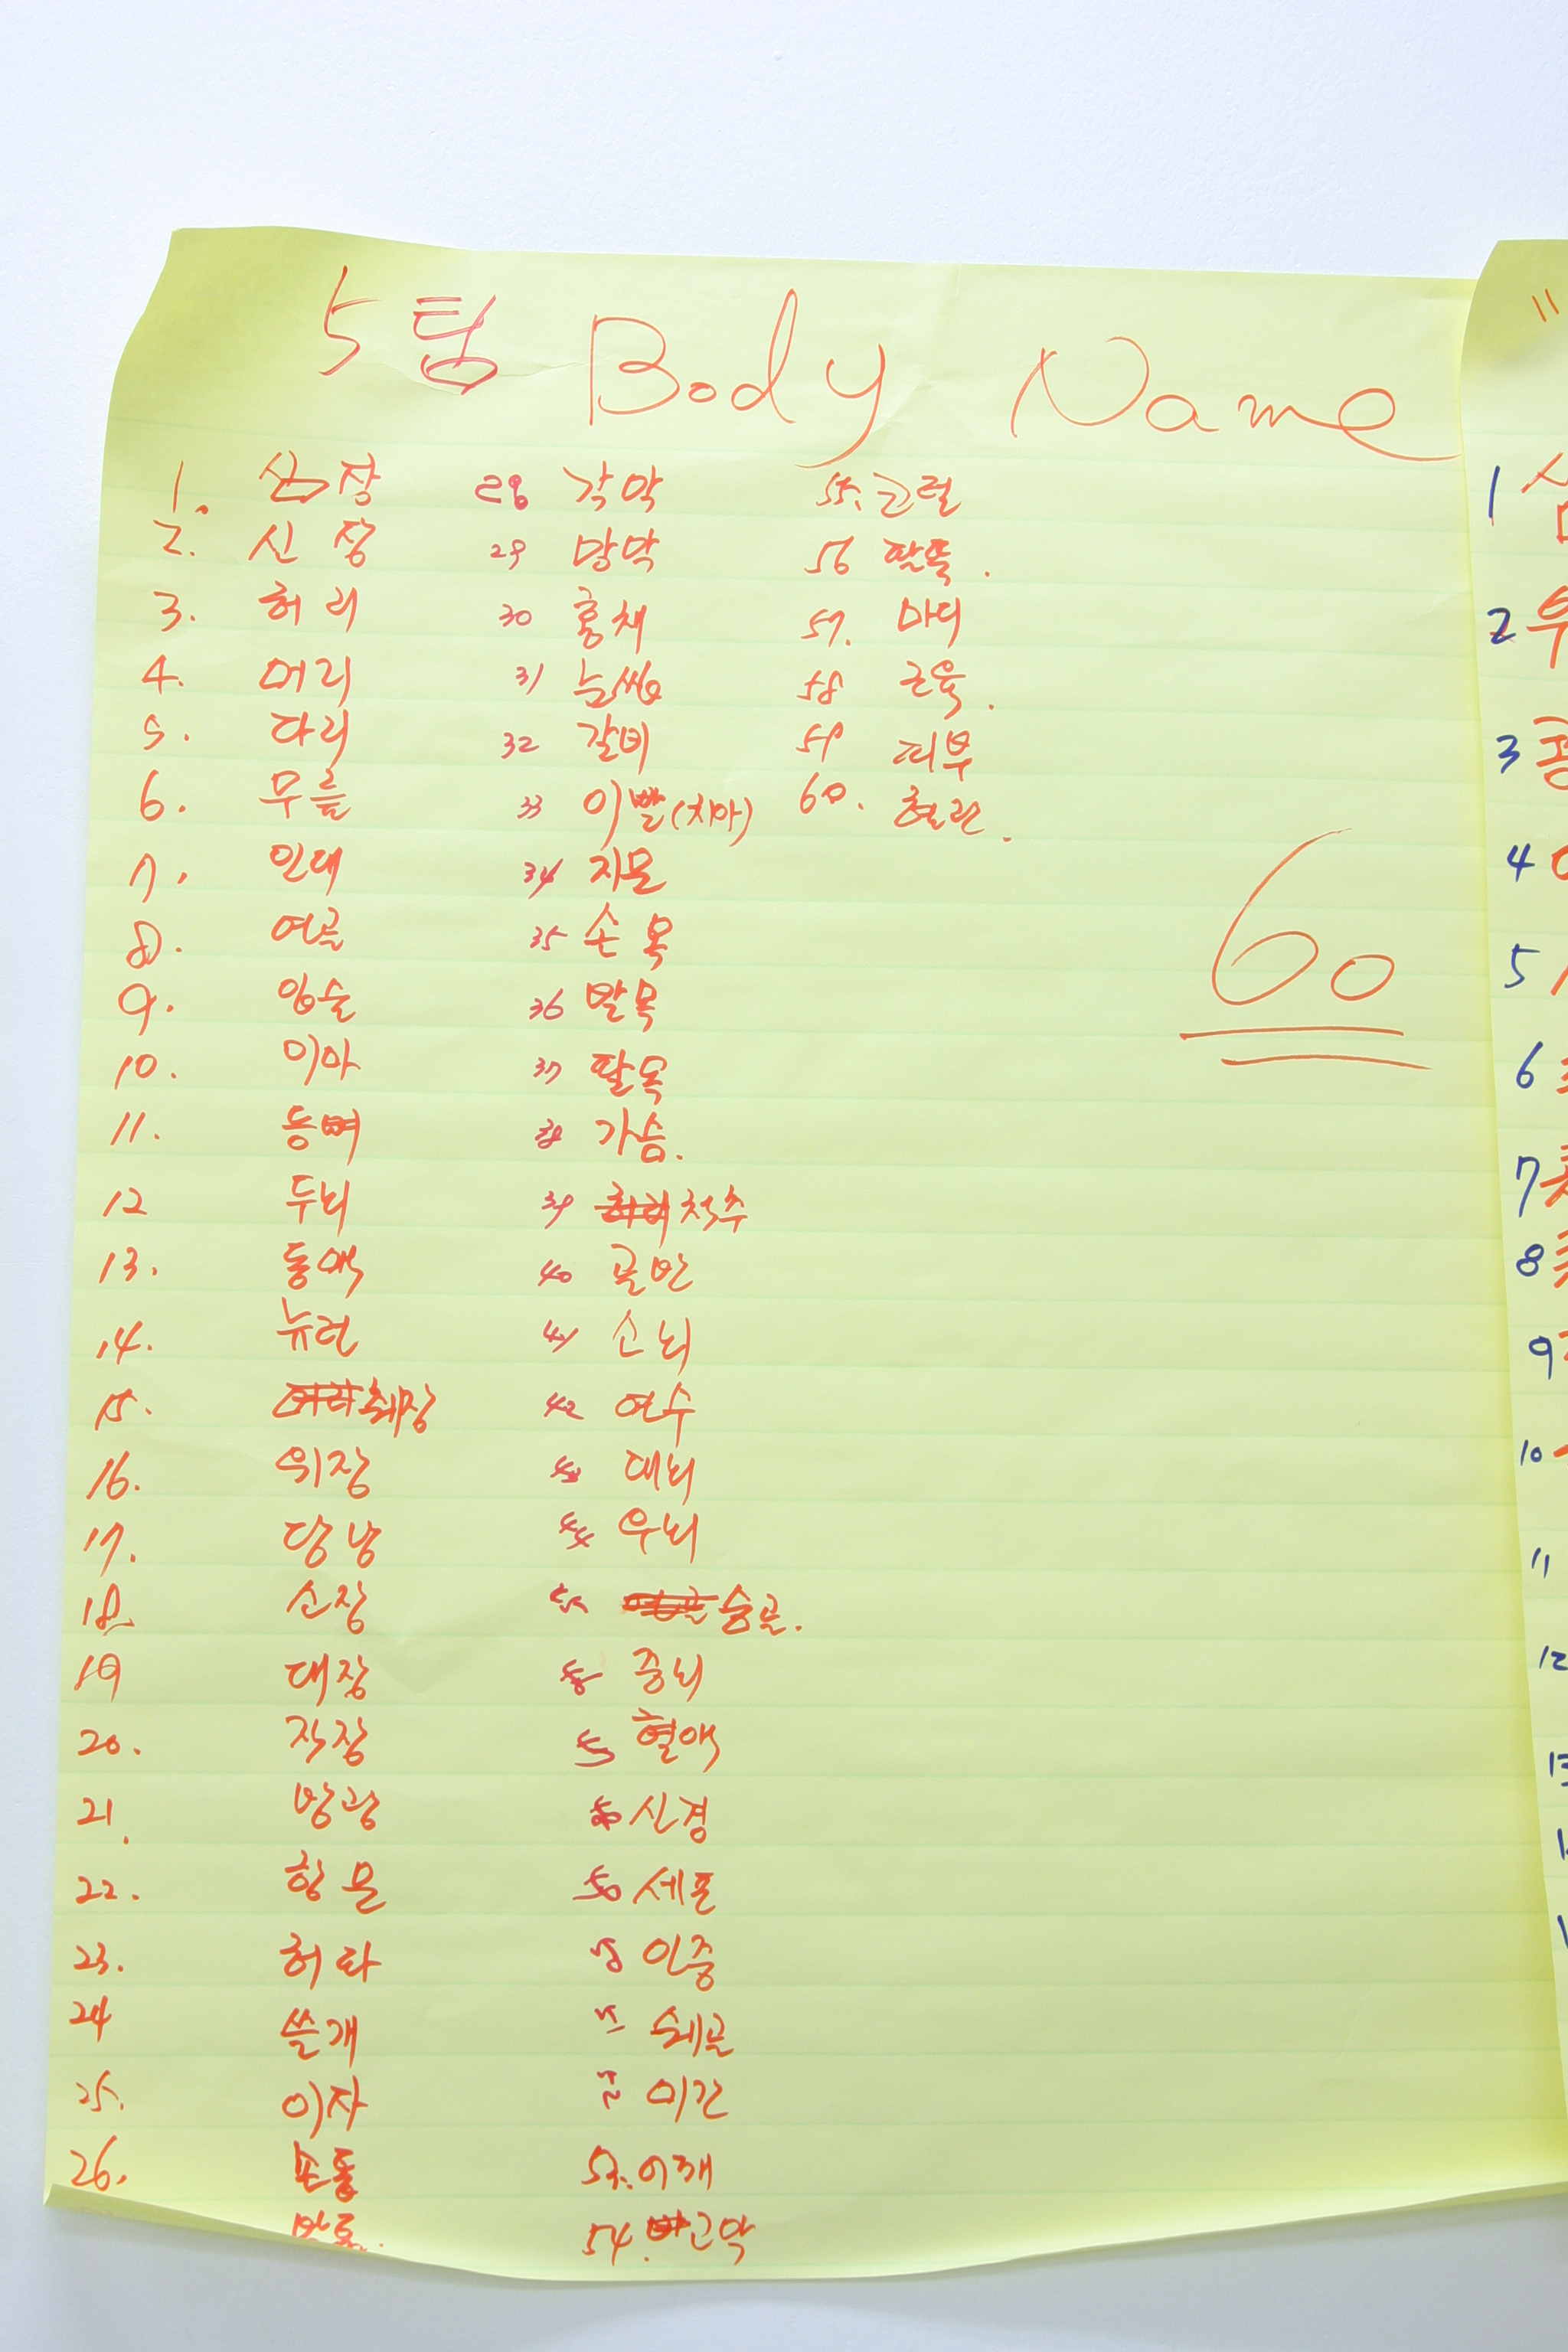 5팀 Body Name
2. 신장
3. 허리
4. 머리
5. 다리
6. 무릎
7. 인대
8. 어골
9. 입술
10. 이마
11. 등뼈
12 두뇌
13. 동맥
14. 뉴런
15. 췌장
16. 위장
17. 담낭
18. 소장
19 대장
20. 직장
21. 방광
22. 항문
23. 허파
24 쓸개
25. 이자
26. 손톱
발톱.
28 각막
29 망막
30 홍채
31 눈썹
32 갈비
33 이빨(치아)
34 지문
35 손목
36 발목
37 팔목
38 가슴.
39 척추
40 골반
41 소뇌
42 연수
43 대뇌
44 우뇌
승골.
중뇌
혈액
신경
50 세포
인중
쇄골
미간
53. 어깨
54. 고막
55. 근력
56 팔뚝.
57. 마디
58 근육.
59 피부
60. 혈관.
60
1
2
3
4
5
6
7
8
9
10
11
12
13